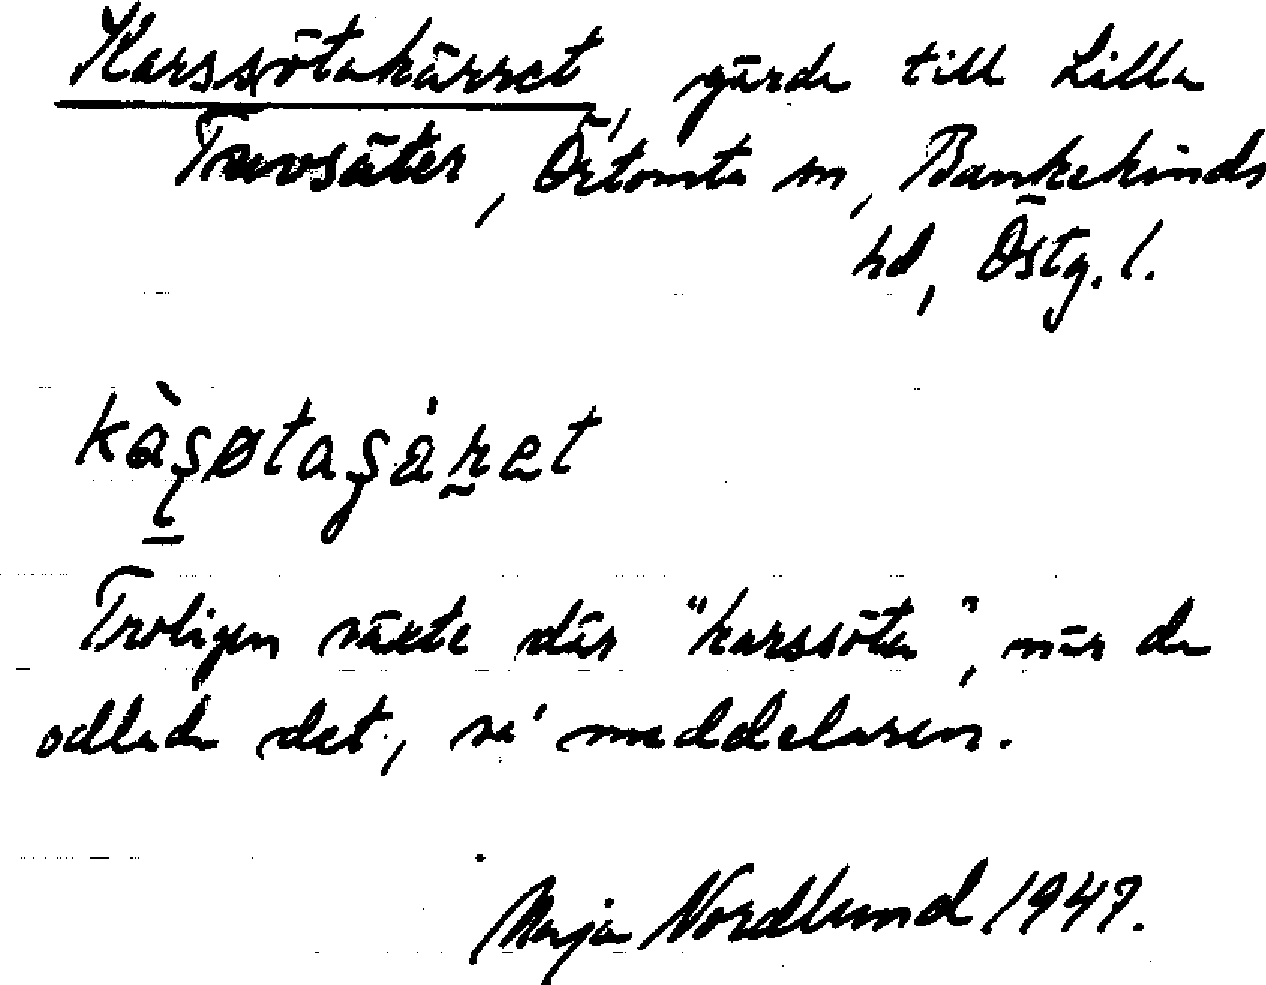 Karssötakärret, gärde till Lilla
Truvsäter, Örtomta sn, Bankekinds
hd, Östg. l.
kàşøtaşáret
Troligen växte där "karssöta", när de
odlade det, sa' meddelaren.
Maja Nordlund 1947.